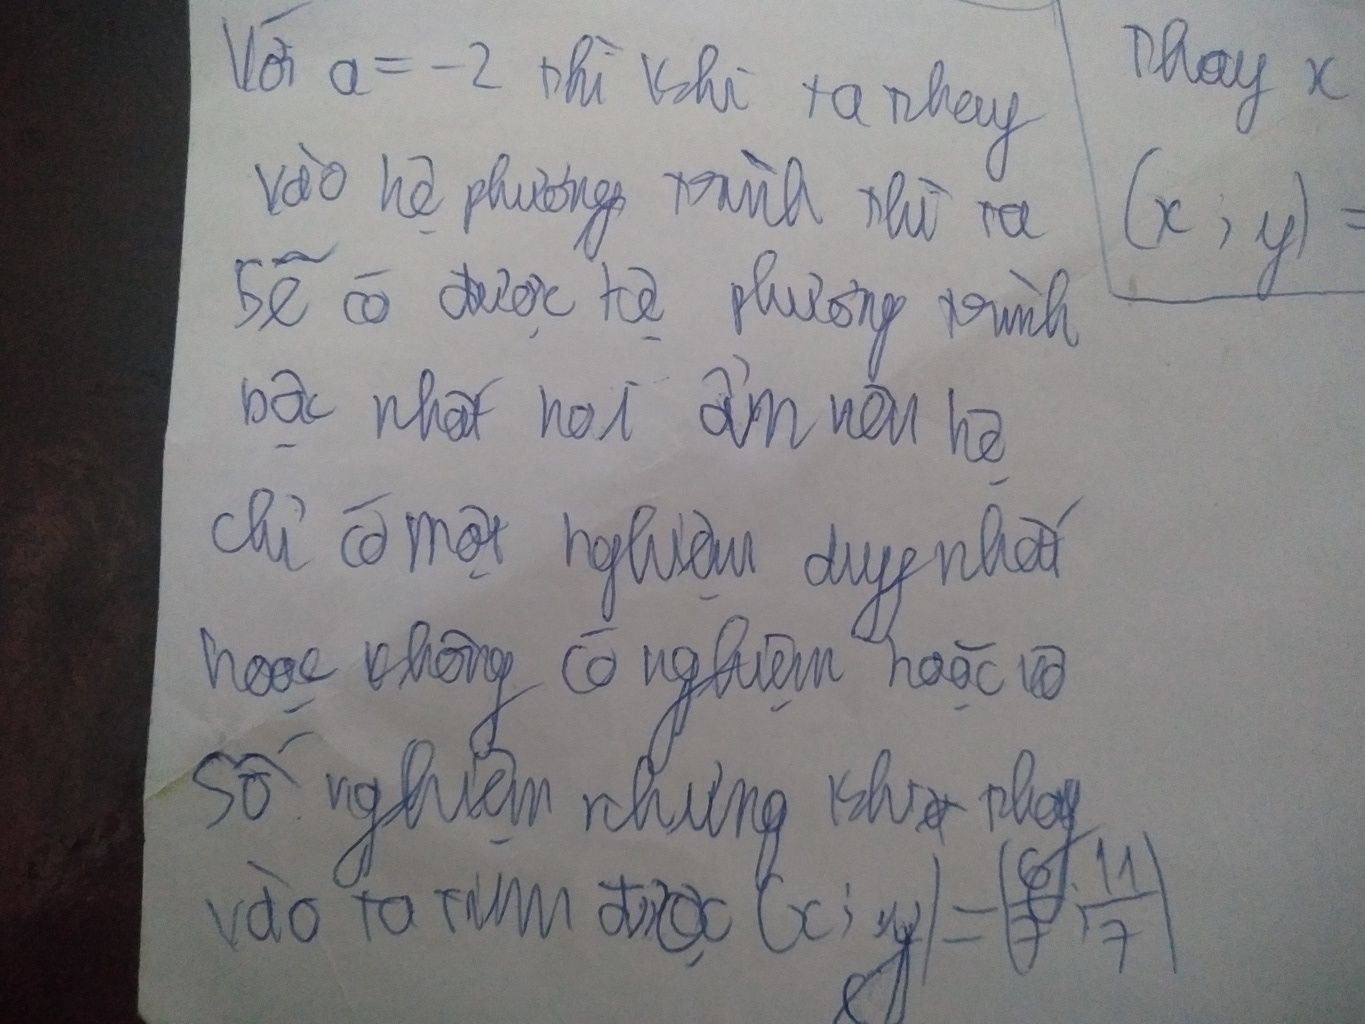 Với a = -2 thì khi ta thay
vào hệ phương trình thì ta
sẽ có được hệ phương trình
bậc nhất hai ẩn nên hệ
chỉ có một nghiệm duy nhất
hoặc không có nghiệm hoặc vô
số nghiệm nhưng khi thay
vào ta tìm được (x; y) = (6/7; 11/7)
Thay x
(x; y) =